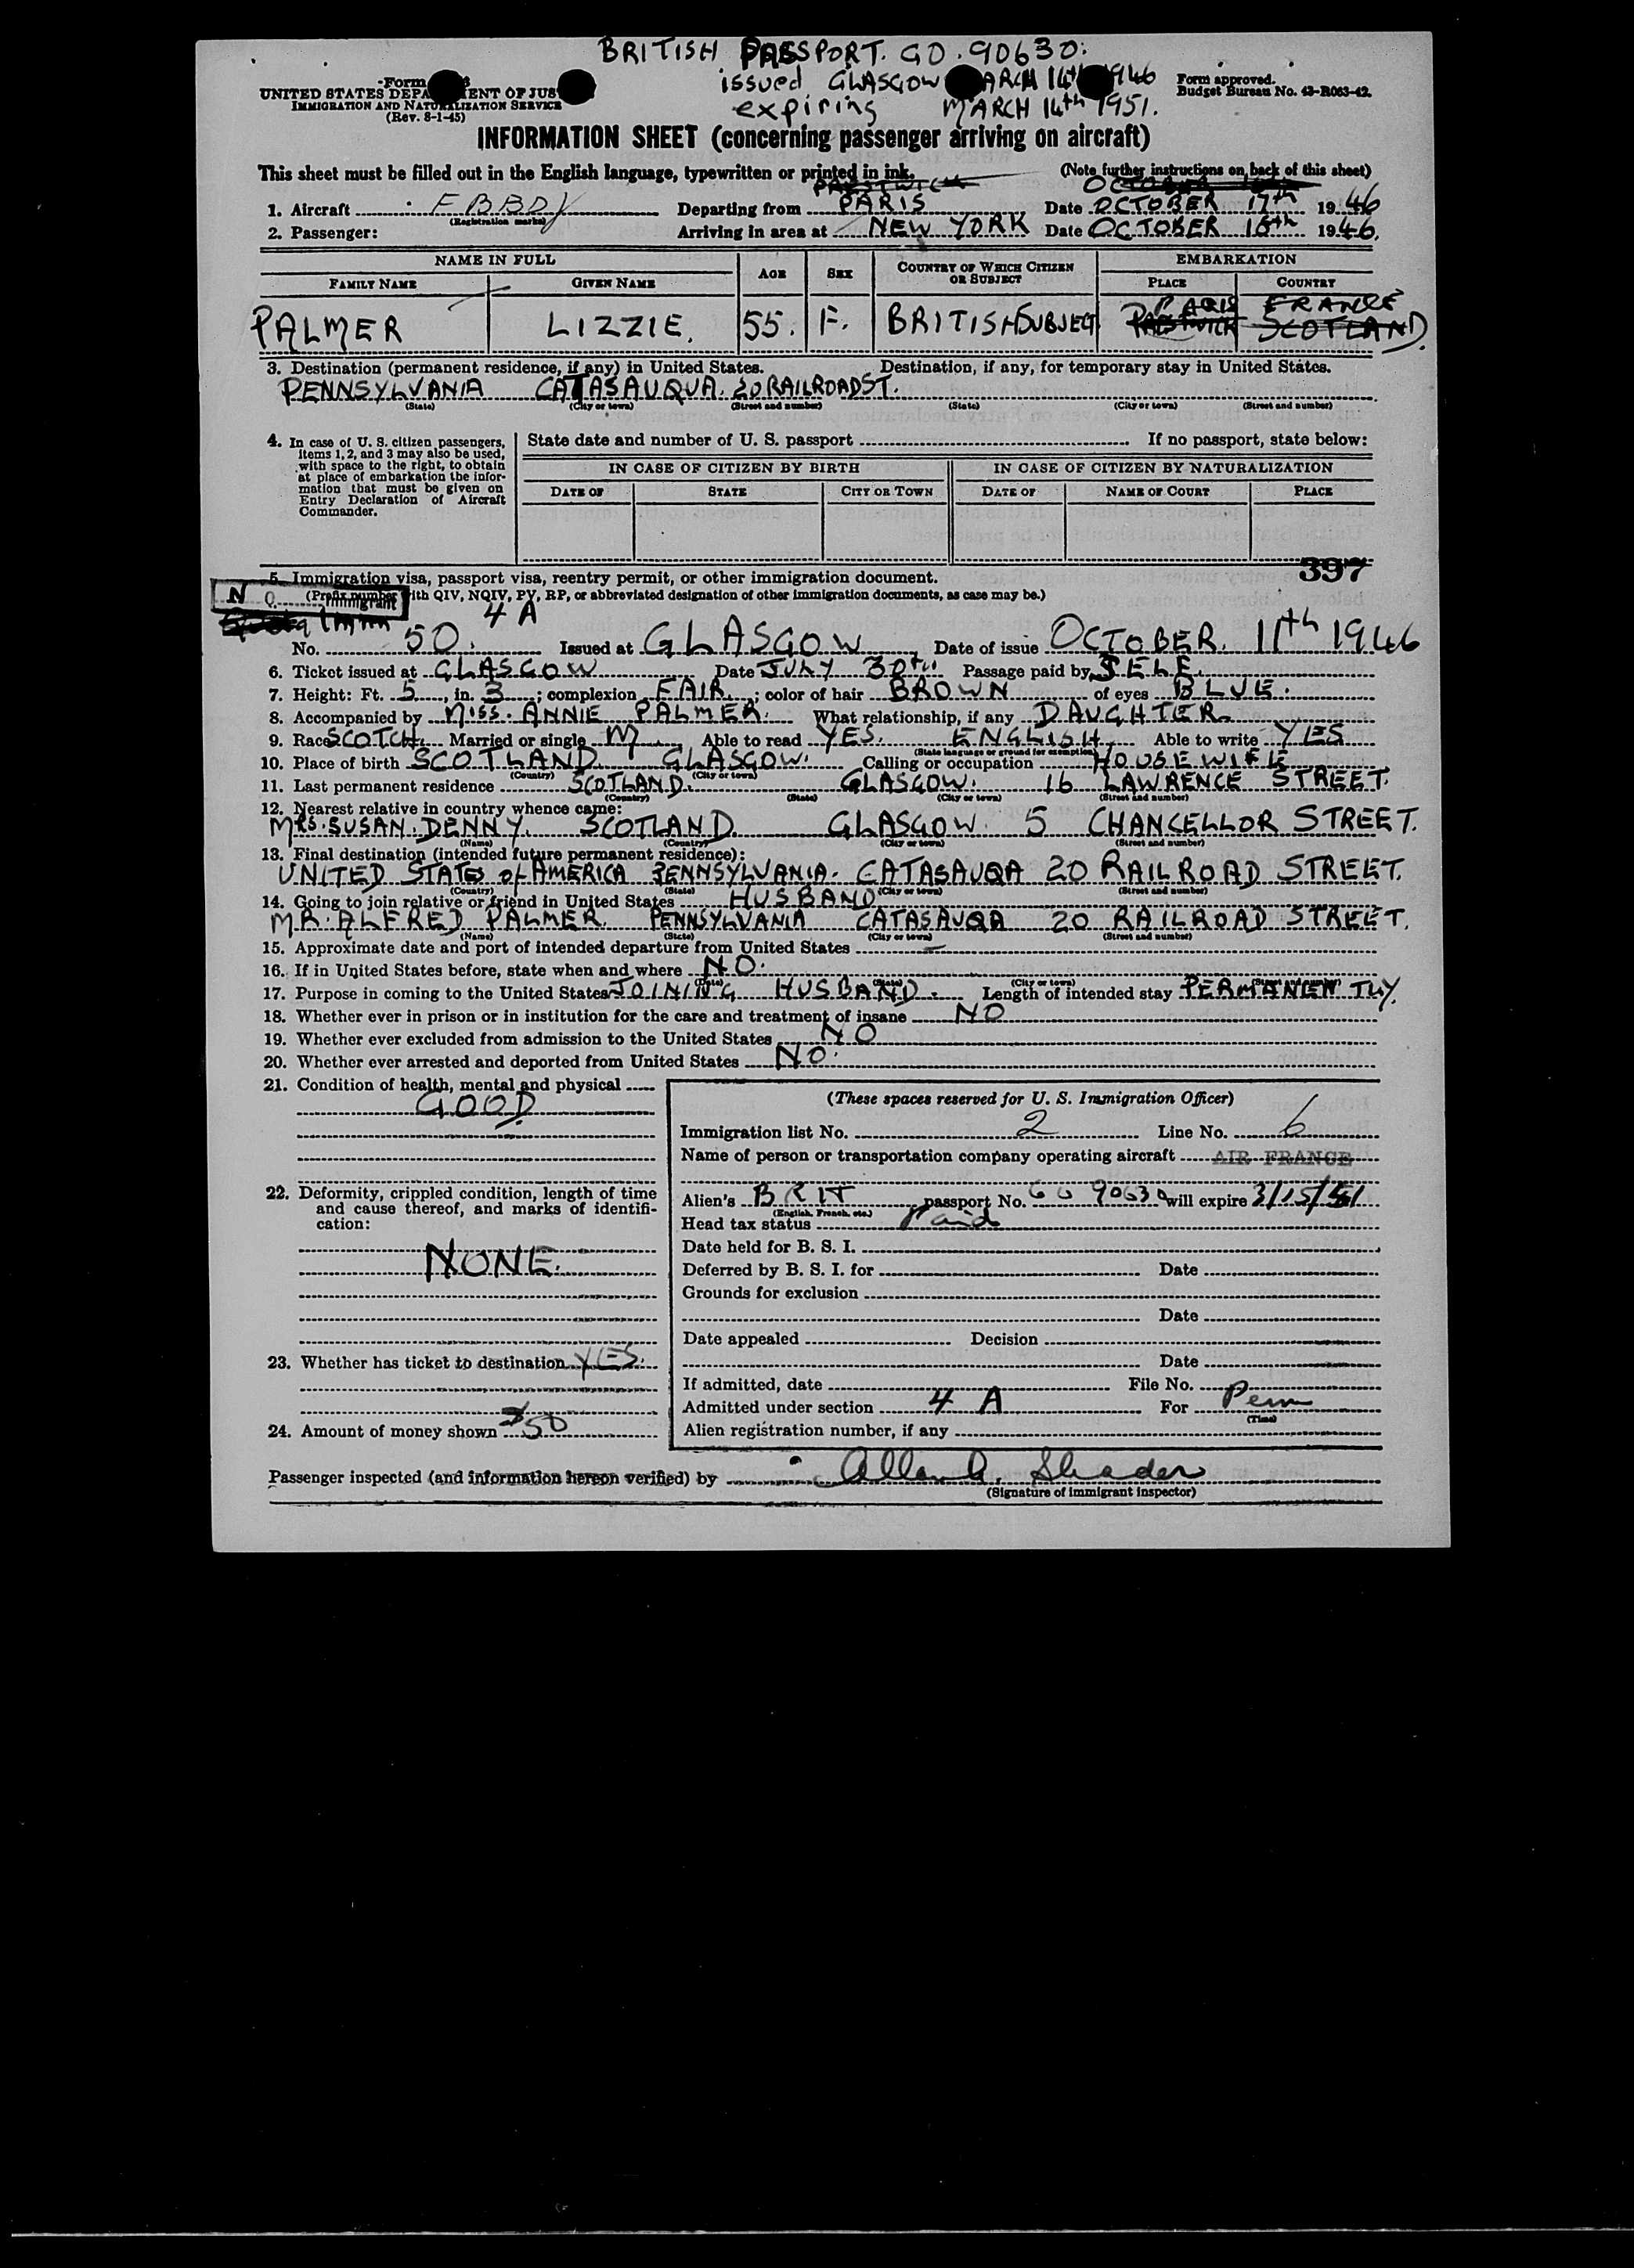 BRITISH PASSPORT. GO. 90630:
issued GLASGOW ARCH 14th 1946
expiring MARCH 14th 1951.
Form
UNITED STATES DEPA ENT OF JUS
IMMIGRATION AND NATURALIZATION SERVICE
(Rev. 8-1-45)
Form approved.
Budget Bureau No. 43-R063-42.
INFORMATION SHEET (concerning passenger arriving on aircraft)
This sheet must be filled out in the English language, typewritten or printed in ink. (Note further instructions on back of this sheet)
PRESTWICK OCTOBER
1. Aircraft F BBDY Departing from PARIS Date OCTOBER 17th 1946
(Registration marks)
2. Passenger: Arriving in area at NEW YORK Date OCTOBER 18th 1946.
NAME IN FULL AGE SEX COUNTRY OF WHICH CITIZEN OR SUBJECT EMBARKATION
FAMILY NAME GIVEN NAME PLACE COUNTRY
PARIS FRANCE
PALMER LIZZIE. 55. F. BRITISH SUBJECT PRESTWICK SCOTLAND.
3. Destination (permanent residence, if any) in United States. Destination, if any, for temporary stay in United States.
PENNSYLVANIA CATASAUQUA. 20 RAILROAD ST.
(State) (City or town) (Street and number) (State) (City or town) (Street and number)
4. In case of U. S. citizen passengers, items 1, 2, and 3 may also be used, with space to the right, to obtain at place of embarkation the information that must be given on Entry Declaration of Aircraft Commander.
State date and number of U. S. passport If no passport, state below:
IN CASE OF CITIZEN BY BIRTH IN CASE OF CITIZEN BY NATURALIZATION
DATE OF STATE CITY OR TOWN DATE OF NAME OF COURT PLACE
397
5. Immigration visa, passport visa, reentry permit, or other immigration document.
(Prefix number with QIV, NQIV, PV, RP, or abbreviated designation of other immigration documents, as case may be.)
N Q. Immigrant
4 A
No. 50. Issued at GLASGOW Date of issue OCTOBER. 11th 1946
6. Ticket issued at GLASGOW Date JULY 30th Passage paid by SELF.
7. Height: Ft. 5, in. 3; complexion FAIR; color of hair BROWN of eyes BLUE.
8. Accompanied by MISS. ANNIE PALMER. What relationship, if any DAUGHTER
9. Race SCOTCH. Married or single M Able to read YES. ENGLISH. Able to write YES
(State language or ground for exemption)
10. Place of birth SCOTLAND GLASGOW. Calling or occupation HOUSEWIFE
(Country) (City or town)
11. Last permanent residence SCOTLAND. GLASGOW. 16 LAWRENCE STREET.
(Country) (State) (City or town) (Street and number)
12. Nearest relative in country whence came:
MRS. SUSAN. DENNY. SCOTLAND. GLASGOW. 5 CHANCELLOR STREET.
(Name) (Country) (City or town) (Street and number)
13. Final destination (intended future permanent residence):
UNITED STATES of AMERICA PENNSYLVANIA. CATASAUQA 20 RAILROAD STREET.
(Country) (State) (City or town) (Street and number)
14. Going to join relative or friend in United States HUSBAND
MR. ALFRED PALMER. PENNSYLVANIA CATASAUQA 20 RAILROAD STREET.
(Name) (State) (City or town) (Street and number)
15. Approximate date and port of intended departure from United States —
16. If in United States before, state when and where NO.
(Date) (State) (City or town) (Street and number)
17. Purpose in coming to the United States JOINING HUSBAND. Length of intended stay PERMANENTLY.
18. Whether ever in prison or in institution for the care and treatment of insane NO
19. Whether ever excluded from admission to the United States NO
20. Whether ever arrested and deported from United States NO.
21. Condition of health, mental and physical
GOOD
22. Deformity, crippled condition, length of time and cause thereof, and marks of identification:
NONE.
23. Whether has ticket to destination YES.
24. Amount of money shown $50
(These spaces reserved for U. S. Immigration Officer)
Immigration list No. 2 Line No. 6
Name of person or transportation company operating aircraft AIR FRANCE
Alien's BRIT passport No. GO 90630 will expire 3/15/51
(English, French, etc.)
Head tax status Paid
Date held for B. S. I.
Deferred by B. S. I. for Date
Grounds for exclusion
Date
Date appealed Decision
Date
If admitted, date File No.
Admitted under section 4 A For Perm
(Time)
Alien registration number, if any
Passenger inspected (and information hereon verified) by Allan A. Shader
(Signature of immigrant inspector)